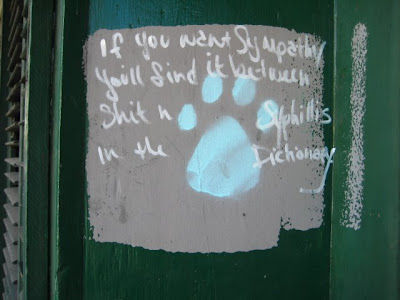 If you want Sympathy
You'll find it between
Shit n Syphillis
In the Dictionary